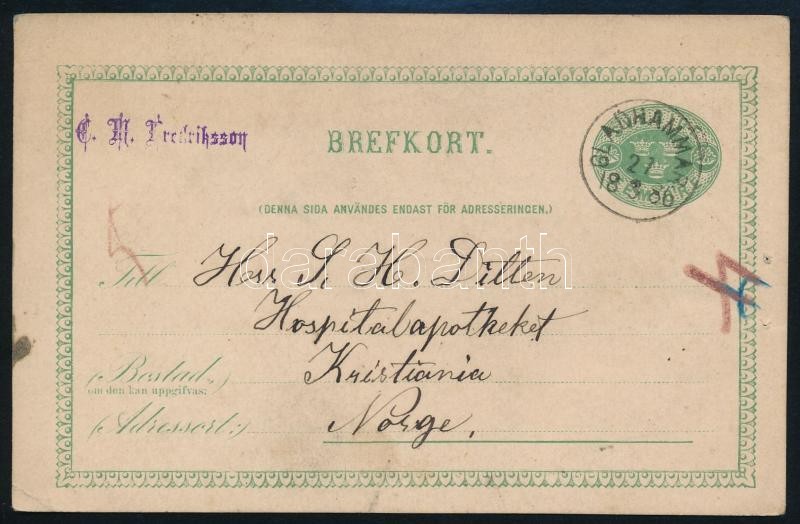 C. M. Fredriksson
BREFKORT.
GLADHAMMAR
27
18 3 86
(DENNA SIDA ANVÄNDES ENDAST FÖR ADRESSERINGEN.)
Till Herr S. H. Ditten
Hospitalapotheket
(Bostad)
om den kan uppgifvas:
Kristiania
(Adressort:) Norge.
darabanth